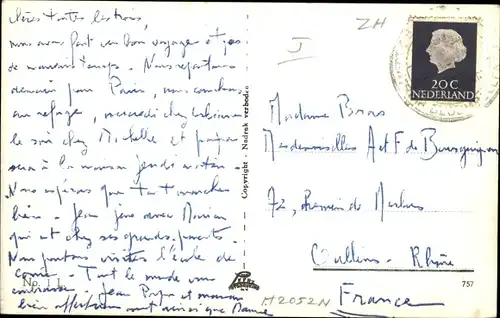 Chères toutes les trois,
nous avons fait un bon voyage et pas
de mauvais temps. Nous repartons
demain pour Paris, nous couchons
au refuge, mercredi chez
le soir chez Michelle et
sera à la maison jeudi matin.
Nous espérons que tout marche
bien. Jean joue avec Manou
qui est chez ses grands-parents.
Nous partons visiter l'école de
Tout le monde vous
embrasse. Jean
bien affectueusement ainsi que
No. 11
Copyright - Nadruk verboden
J
ZH
20 C
NEDERLAND
Madame Bros
Mesdemoiselles A et F de Bourguignon
72, chemin de
Oullins - Rhône
France
757
H2052N